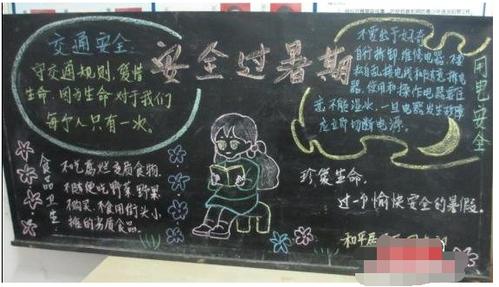 安全过暑期
交通安全:
守交通规则,爱惜
生命,因为生命对于我们
每个人只有一次。
用电安全
不要出于好奇
自行拆卸、维修电器,不
私自乱接电线和
电器,使用和操作电器要注
意,不能湿水,一旦电器发生故障
应立即切断电源。
食品卫生:
不吃腐烂变质食物.
不随便吃野草、野果
不购买、不食用街头小
摊的劣质食品。
珍爱生命.
过一个愉快安全的暑假.
和平